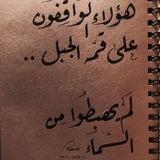 هؤلاء لواقفون
على قمة الجبل ..
لم يهبطوا من
السماء